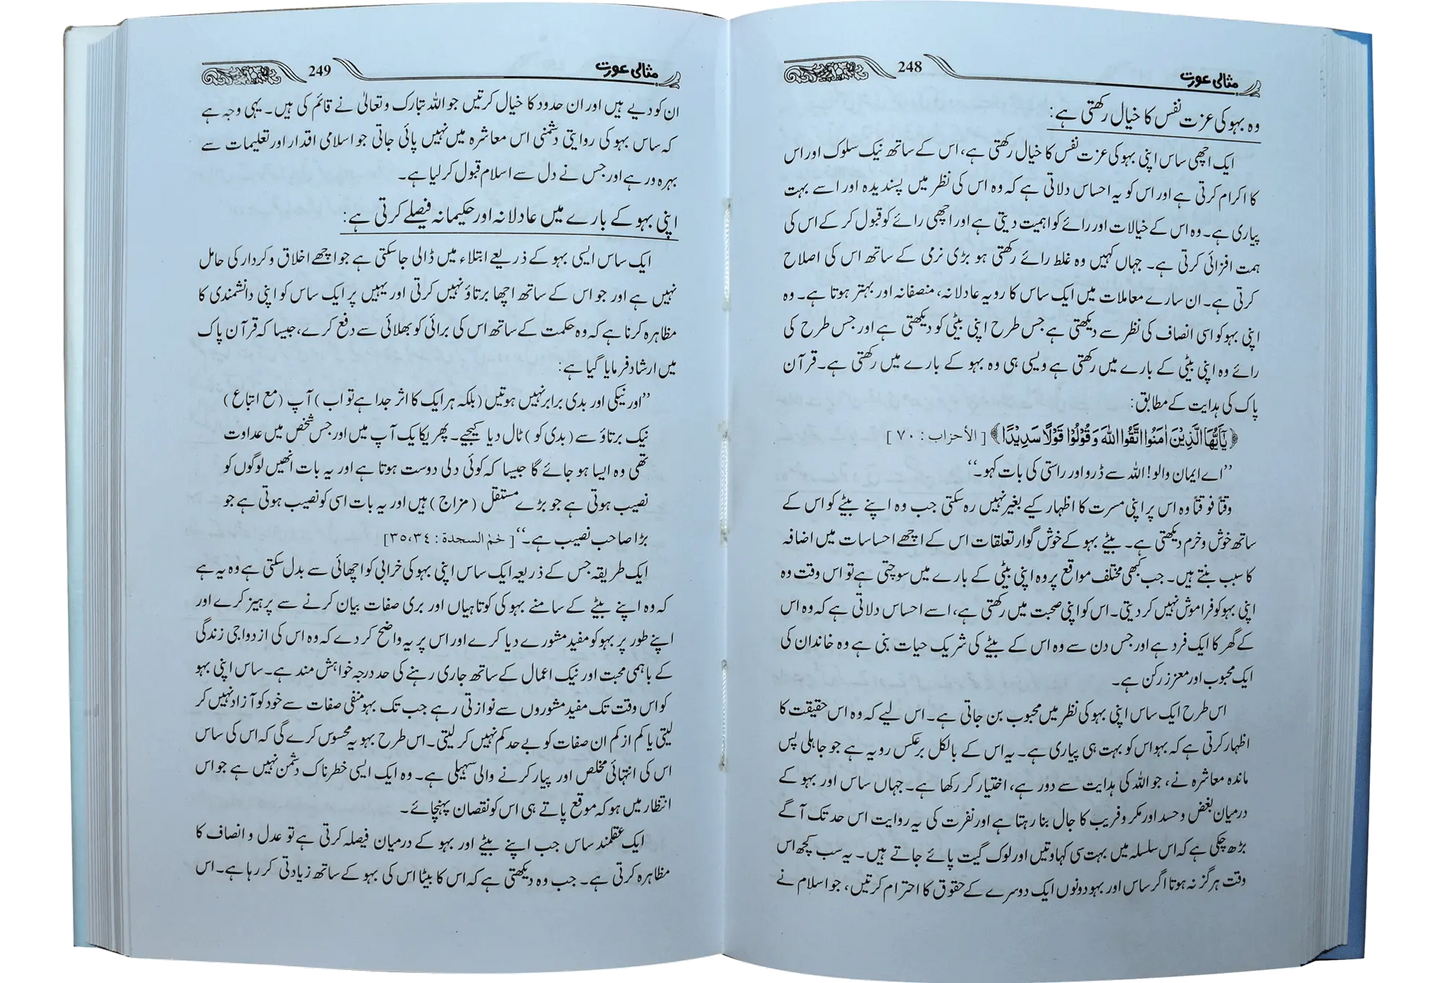 مثالی عورت 248
وہ بہو کی عزت نفس کا خیال رکھتی ہے:
ایک اچھی ساس اپنی بہو کی عزت نفس کا خیال رکھتی ہے، اس کے ساتھ نیک سلوک اور اس
کا اکرام کرتی ہے اور اس کو یہ احساس دلاتی ہے کہ وہ اس کی نظر میں پسندیدہ اور اسے بہت
پیاری ہے۔ وہ اس کے خیالات اور رائے کو اہمیت دیتی ہے اور اچھی رائے کو قبول کر کے اس کی
ہمت افزائی کرتی ہے۔ جہاں کہیں وہ غلط رائے رکھتی ہو بڑی نرمی کے ساتھ اس کی اصلاح
کرتی ہے۔ ان سارے معاملات میں ایک ساس کا رویہ عادلانہ، منصفانہ اور بہتر ہوتا ہے۔ وہ
اپنی بہو کو اسی انصاف کی نظر سے دیکھتی ہے جس طرح اپنی بیٹی کو دیکھتی ہے اور جس طرح کی
رائے وہ اپنی بیٹی کے بارے میں رکھتی ہے ویسی ہی وہ بہو کے بارے میں رکھتی ہے۔ قرآن
پاک کی ہدایت کے مطابق:
﴿يٰۤاَيُّهَا الَّذِيْنَ اٰمَنُوا اتَّقُوا اللّٰهَ وَ قُوْلُوْا قَوْلًا سَدِيْدًا﴾ [الأحزاب: ۷۰]
’’اے ایمان والو! اللہ سے ڈرو اور راستی کی بات کہو۔‘‘
وقتاً فوقتاً وہ اس پر اپنی مسرت کا اظہار کیے بغیر نہیں رہ سکتی جب وہ اپنے بیٹے کو اس کے
ساتھ خوش و خرم دیکھتی ہے۔ بیٹے بہو کے خوش گوار تعلقات اس کے اچھے احساسات میں اضافہ
کا سبب بنتے ہیں۔ جب کبھی مختلف مواقع پر وہ اپنی بیٹی کے بارے میں سوچتی ہے تو اس وقت وہ
اپنی بہو کو فراموش نہیں کر دیتی۔ اس کو اپنی صحبت میں رکھتی ہے، اسے احساس دلاتی ہے کہ وہ اس
کے گھر کا ایک فرد ہے اور جس دن سے وہ اس کے بیٹے کی شریک حیات بنی ہے وہ خاندان کی
ایک محبوب اور معزز رکن ہے۔
اس طرح ایک ساس اپنی بہو کی نظر میں محبوب بن جاتی ہے۔ اس لیے کہ وہ اس حقیقت کا
اظہار کرتی ہے کہ بہو اس کو بہت ہی پیاری ہے۔ یہ اس کے بالکل برعکس رویہ ہے جو جاہلی پس
ماندہ معاشرہ نے، جو اللہ کی ہدایت سے دور ہے، اختیار کر رکھا ہے۔ جہاں ساس اور بہو کے
درمیان بغض و حسد اور مکر و فریب کا جال بنا رہتا ہے اور نفرت کی یہ روایت اس حد تک آگے
بڑھ چکی ہے کہ اس سلسلہ میں بہت سی کہاوتیں اور لوک گیت پائے جاتے ہیں۔ یہ سب کچھ اس
وقت ہرگز نہ ہوتا اگر ساس اور بہو دونوں ایک دوسرے کے حقوق کا احترام کرتیں، جو اسلام نے
مثالی عورت 249
ان کو دیے ہیں اور ان حدود کا خیال کرتیں جو اللہ تبارک و تعالیٰ نے قائم کی ہیں۔ یہی وجہ ہے
کہ ساس بہو کی روایتی دشمنی اس معاشرہ میں نہیں پائی جاتی جو اسلامی اقدار اور تعلیمات سے
بہرہ ور ہے اور جس نے دل سے اسلام قبول کر لیا ہے۔
اپنی بہو کے بارے میں عادلانہ اور حکیمانہ فیصلے کرتی ہے:
ایک ساس ایسی بہو کے ذریعے ابتلاء میں ڈالی جا سکتی ہے جو اچھے اخلاق و کردار کی حامل
نہیں ہے اور جو اس کے ساتھ اچھا برتاؤ نہیں کرتی اور یہیں پر ایک ساس کو اپنی دانشمندی کا
مظاہرہ کرنا ہے کہ وہ حکمت کے ساتھ اس کی برائی کو بھلائی سے دفع کرے، جیسا کہ قرآن پاک
میں ارشاد فرمایا گیا ہے:
’’اور نیکی اور بدی برابر نہیں ہوتیں (بلکہ ہر ایک کا اثر جدا ہے تو اب) آپ (مع اتباع)
نیک برتاؤ سے (بدی کو) ٹال دیا کیجیے۔ پھر یکایک آپ میں اور جس شخص میں عداوت
تھی وہ ایسا ہو جائے گا جیسا کہ کوئی دلی دوست ہوتا ہے اور یہ بات انھیں لوگوں کو
نصیب ہوتی ہے جو بڑے مستقل (مزاج) ہیں اور یہ بات اسی کو نصیب ہوتی ہے جو
بڑا صاحب نصیب ہے۔‘‘ [حٰمٓ السجدة: ۳۵،۳۴]
ایک طریقہ جس کے ذریعہ ایک ساس اپنی بہو کی خرابی کو اچھائی سے بدل سکتی ہے وہ یہ ہے
کہ وہ اپنے بیٹے کے سامنے بہو کی کوتاہیاں اور بری صفات بیان کرنے سے پرہیز کرے اور
اپنے طور پر بہو کو مفید مشورے دیا کرے اور اس پر یہ واضح کر دے کہ وہ اس کی ازدواجی زندگی
کے باہمی محبت اور نیک اعمال کے ساتھ جاری رہنے کی حد درجہ خواہش مند ہے۔ ساس اپنی بہو
کو اس وقت تک مفید مشوروں سے نوازتی رہے جب تک بہو منفی صفات سے خود کو آزاد نہیں کر
لیتی یا کم از کم ان صفات کو بے حد کم نہیں کر لیتی۔ اس طرح بہو یہ محسوس کرے گی کہ اس کی ساس
اس کی انتہائی مخلص اور پیار کرنے والی سہیلی ہے۔ وہ ایک ایسی خطرناک دشمن نہیں ہے جو اس
انتظار میں ہو کہ موقع پاتے ہی اس کو نقصان پہنچائے۔
ایک عقلمند ساس جب اپنے بیٹے اور بہو کے درمیان فیصلہ کرتی ہے تو عدل و انصاف کا
مظاہرہ کرتی ہے۔ جب وہ دیکھتی ہے کہ اس کا بیٹا اس کی بہو کے ساتھ زیادتی کر رہا ہے۔ اس